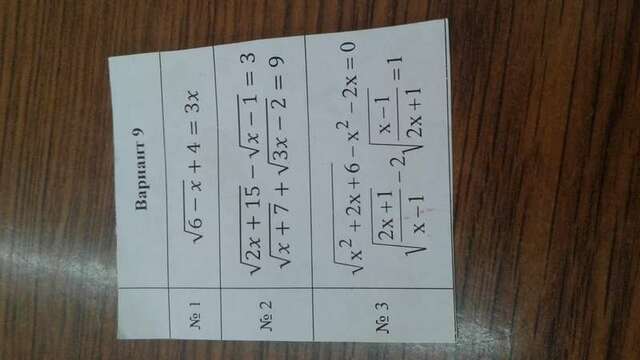 Вариант 9
№ 1 √(6 − x) + 4 = 3x
№ 2
√(2x + 15) − √(x − 1) = 3
√(x + 7) + √(3x − 2) = 9
№ 3
√(x² + 2x + 6) − x² − 2x = 0
√((2x + 1)/(x − 1)) − 2√((x − 1)/(2x + 1)) = 1